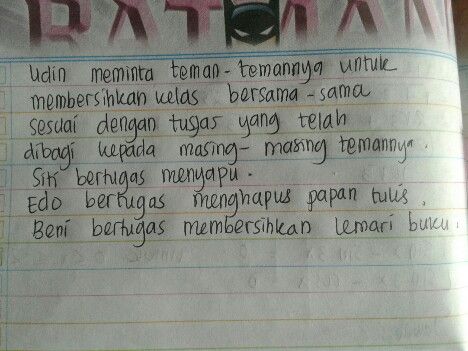 BATMAN
Udin meminta teman-temannya untuk
membersihkan kelas bersama-sama
sesuai dengan tugas yang telah
dibagi kepada masing-masing temannya.
Siti bertugas menyapu.
Edo bertugas menghapus papan tulis.
Beni bertugas membersihkan lemari buku.